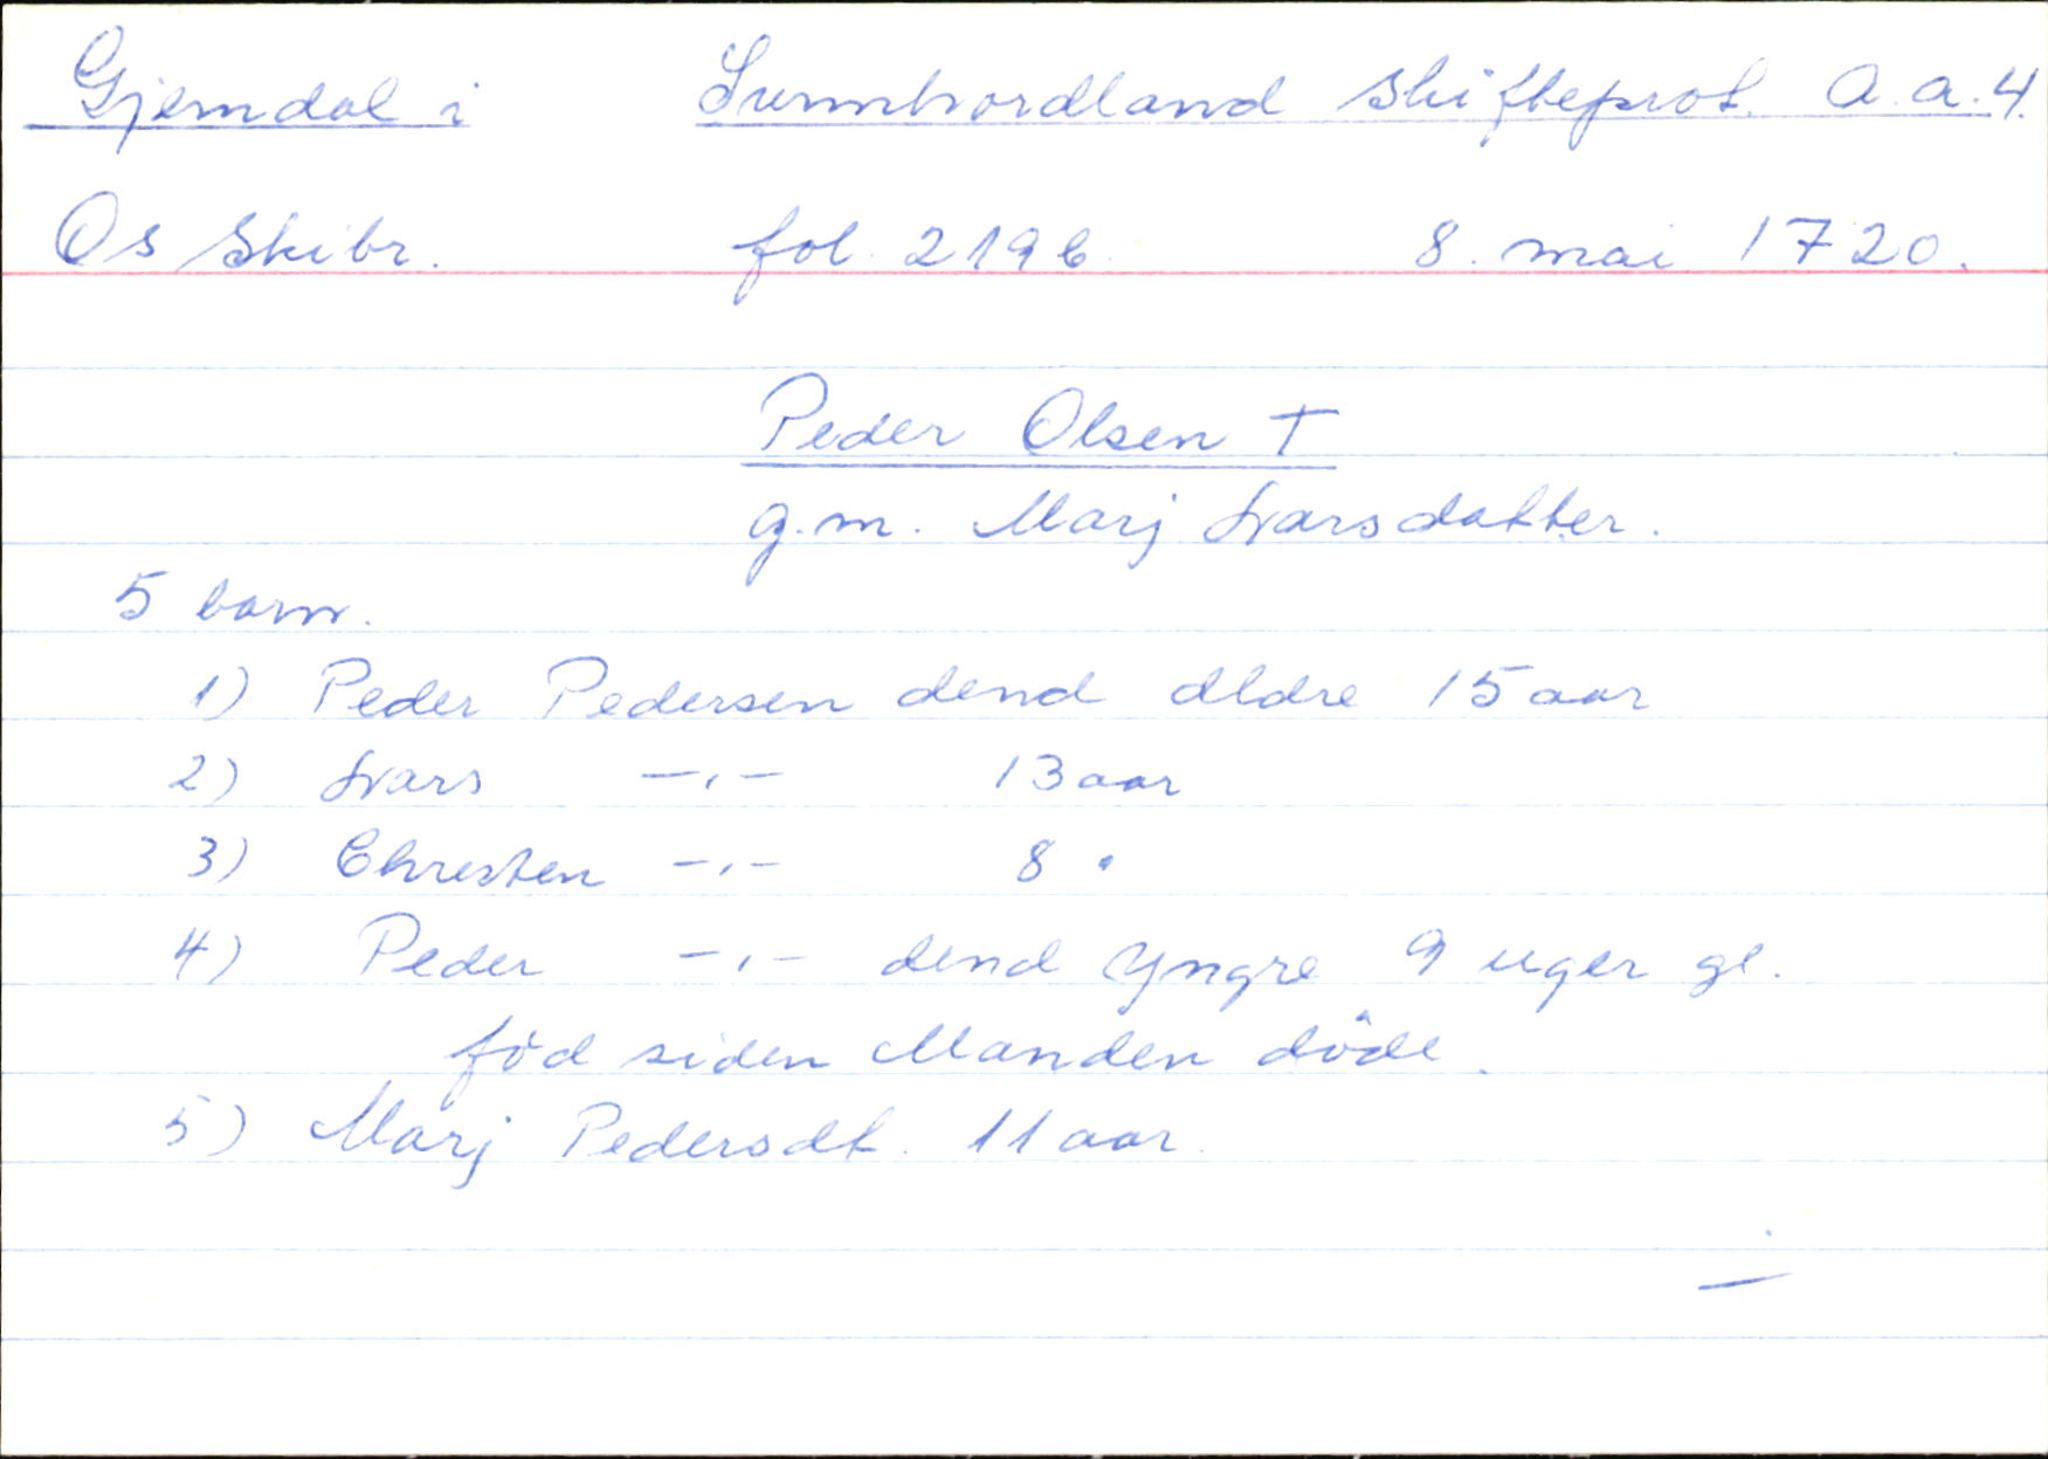 Gjemdal i Sunnhordland skifteprot. A.a.4.
Os Skibr. fol. 219b 8. mai 1720.
Peder Olsen †
g.m. Marj Ivarsdatter.
5 barn.
1) Peder Pedersen dend eldre 15 aar
2) Ivars -"- 13 aar
3) Chresten -"- 8 "
4) Peder -"- dend yngre 9 uger gl.
föd siden Manden döde.
5) Marj Pedersdt. 11 aar.